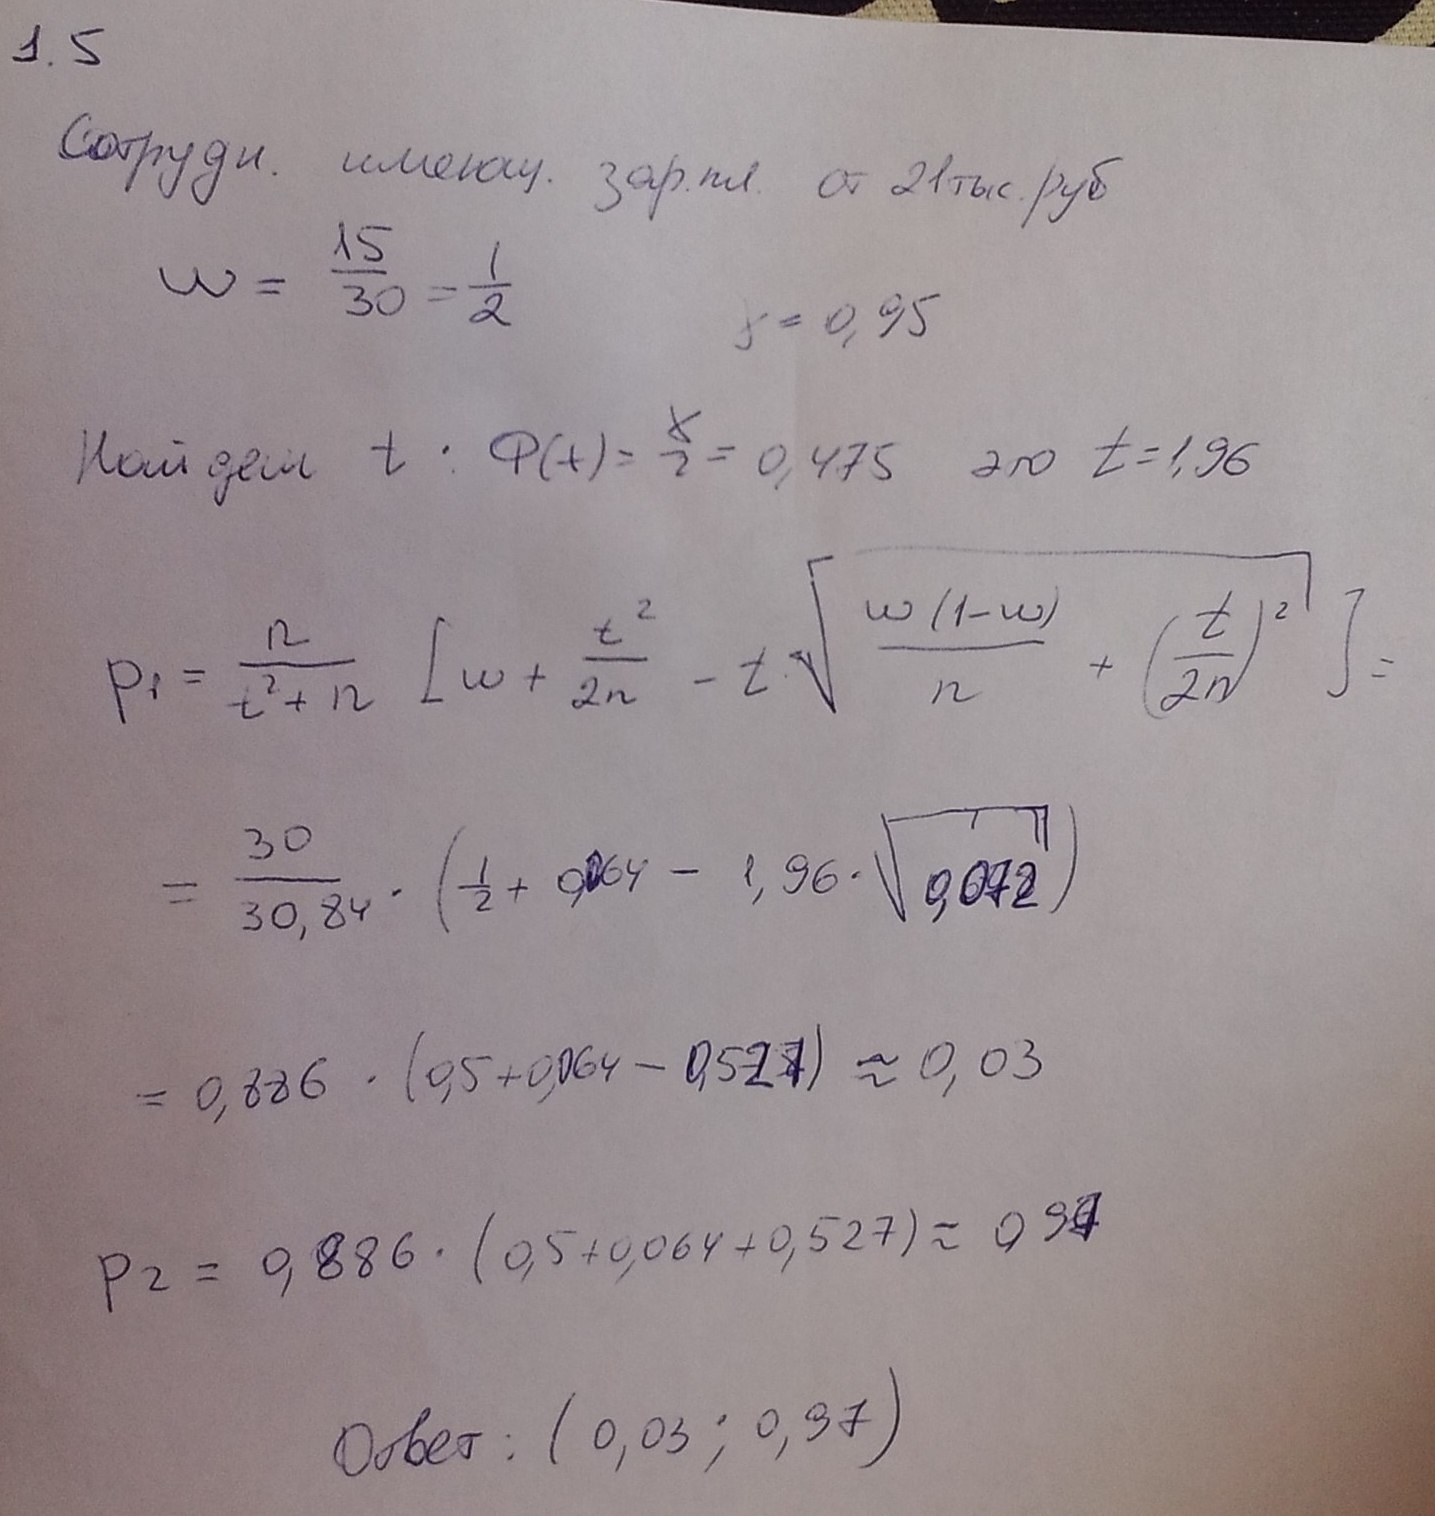 1.5
Сотрудн. имеющ. зар.пл. от 21 тыс. руб
w = 15/30 = 1/2
γ = 0,95
Найдем t : Φ(t) = γ/2 = 0,475 это t = 1,96
p₁ = n/(t² + n) [w + t²/2n - t · √(w(1-w)/n + (t/2n)²)] =
= 30/30,84 · (1/2 + 0,064 - 1,96 · √0,072)
= 0,886 · (0,5 + 0,064 - 0,527) ≈ 0,03
p₂ = 0,886 · (0,5 + 0,064 + 0,527) ≈ 0,97
Ответ : (0,03 ; 0,97)